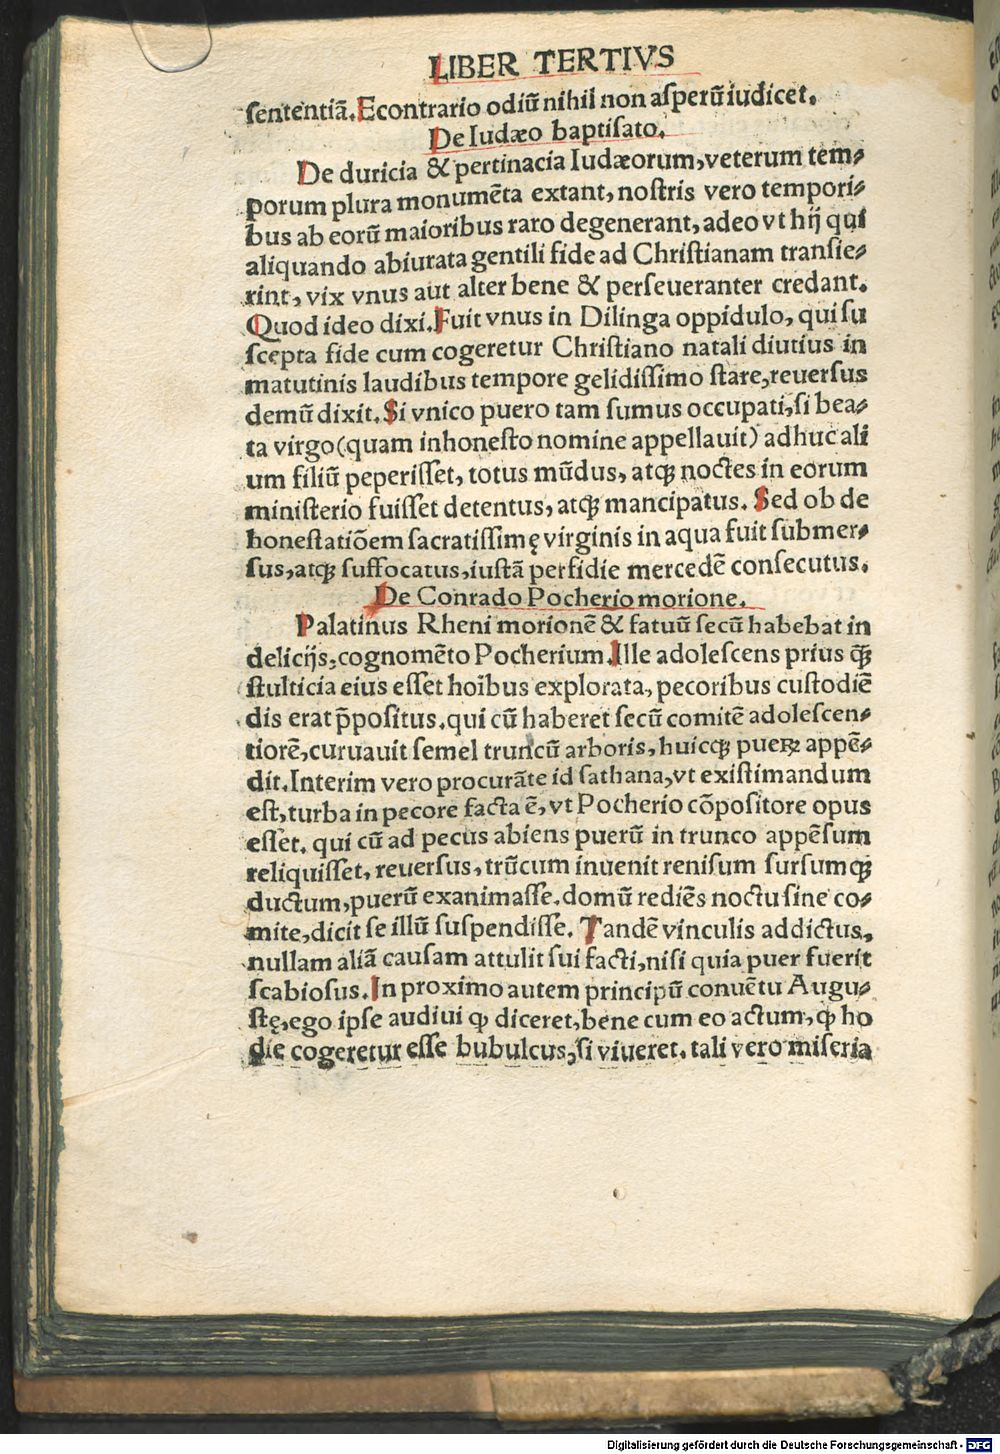 LIBER TERTIVS
ſententiā. Econtrario odiū nihil non aſperū iudicet.
De Iudæo baptiſato.
De duricia & pertinacia Iudæorum, veterum tem⸗
porum plura monumēta extant, noſtris vero tempori⸗
bus ab eorū maioribus raro degenerant, adeo vt hij qui
aliquando abiurata gentili fide ad Chriſtianam tranſie⸗
rint, vix vnus aut alter bene & perſeueranter credant.
Quod ideo dixi. Fuit vnus in Dilinga oppidulo, qui ſu
ſcepta fide cum cogeretur Chriſtiano natali diutius in
matutinis laudibus tempore gelidiſſimo ſtare, reuerſus
demū dixit. Si vnico puero tam ſumus occupati, ſi bea⸗
ta virgo (quam inhoneſto nomine appellauit) adhuc ali
um filiū peperiſſet, totus mūdus, atqꝫ noctes in eorum
miniſterio fuiſſet detentus, atqꝫ mancipatus. Sed ob de
honeſtatiōem ſacratiſſimę virginis in aqua fuit ſubmer⸗
ſus, atqꝫ ſuffocatus, iuſtā perfidie mercedē conſecutus.
De Conrado Pocherio morione.
Palatinus Rheni morionē & fatuū ſecū habebat in
delicijs, cognomēto Pocherium. Ille adoleſcens prius qꝫ̄
ſtulticia eius eſſet hoībus explorata, pecoribus cuſtodiē
dis erat p̄poſitus. qui cū haberet ſecū comitē adoleſcen⸗
tiorē, curuauit ſemel truncū arboris, huicqꝫ pueꝝ appē⸗
dit. Interim vero procurāte id ſathana, vt exiſtimandum
eſt, turba in pecore facta ē, vt Pocherio cōpoſitore opus
eſſet. qui cū ad pecus abiens puerū in trunco appēſum
reliquiſſet, reuerſus, trūcum inuenit reniſum ſurſumqꝫ
ductum, puerū exanimaſſe. domū rediēs noctu ſine co⸗
mite, dicit ſe illū ſuſpendiſſe. Tandē vinculis addictus,
nullam aliā cauſam attulit ſui facti, niſi quia puer fuerit
ſcabioſus. In proximo autem principū conuētu Augu⸗
ſtę, ego ipſe audiui ꝙ diceret, bene cum eo actum, ꝙ ho
die cogeretur eſſe bubulcus, ſi viueret. tali vero miſeria
Digitalisierung gefördert durch die Deutsche Forschungsgemeinschaft - DFG